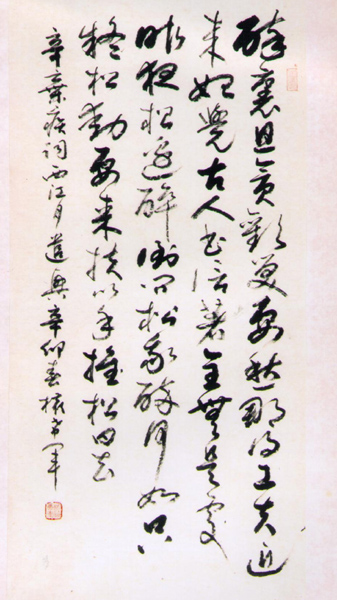 醉裏且贪歡笑要愁那得工夫近
来始覺古人书信著全無是處
昨夜松边醉倒问松我醉何如只
疑松動要来扶以手推松曰去
辛棄疾词西江月遣興辛卯春军